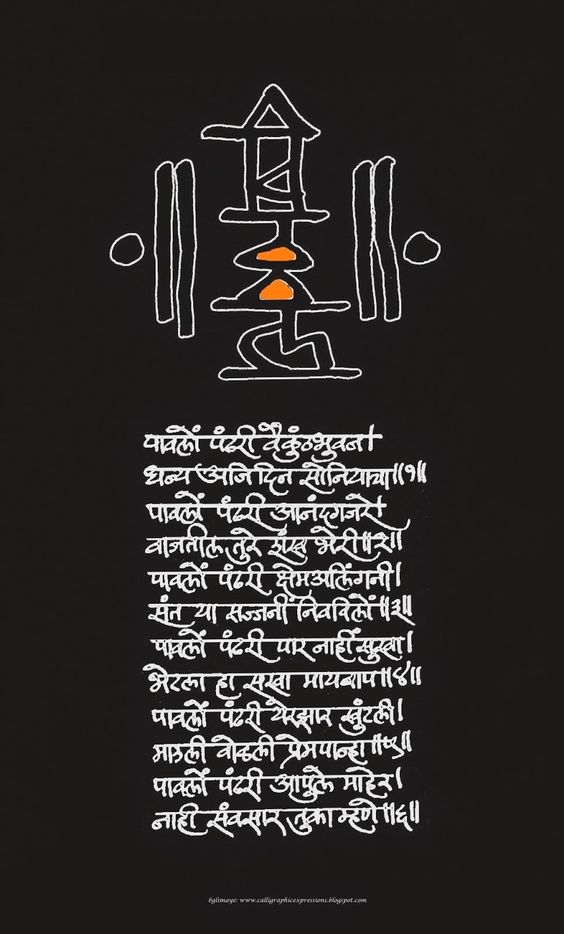 पावलों पंढरी वैकुंठभुवन।
धन्य आजि दिन सोनियाचा॥१॥
पावलों पंढरी आनंदगजरे।
वाजतील तुरे शंख भेरी॥२॥
पावलों पंढरी क्षेमआलिंगनी।
संत या सज्जनीं निवविलों॥३॥
पावलों पंढरी पार नाहीं सुखा।
भेटला हा सखा मायबाप॥४॥
पावलों पंढरी येरझार खुंटली।
माउली वोळली प्रेमपान्हा॥५॥
पावलों पंढरी आपुले माहेर।
नाही संवसार तुका म्हणे॥६॥
bglimaye: www.calligraphicexpressions.blogspot.com